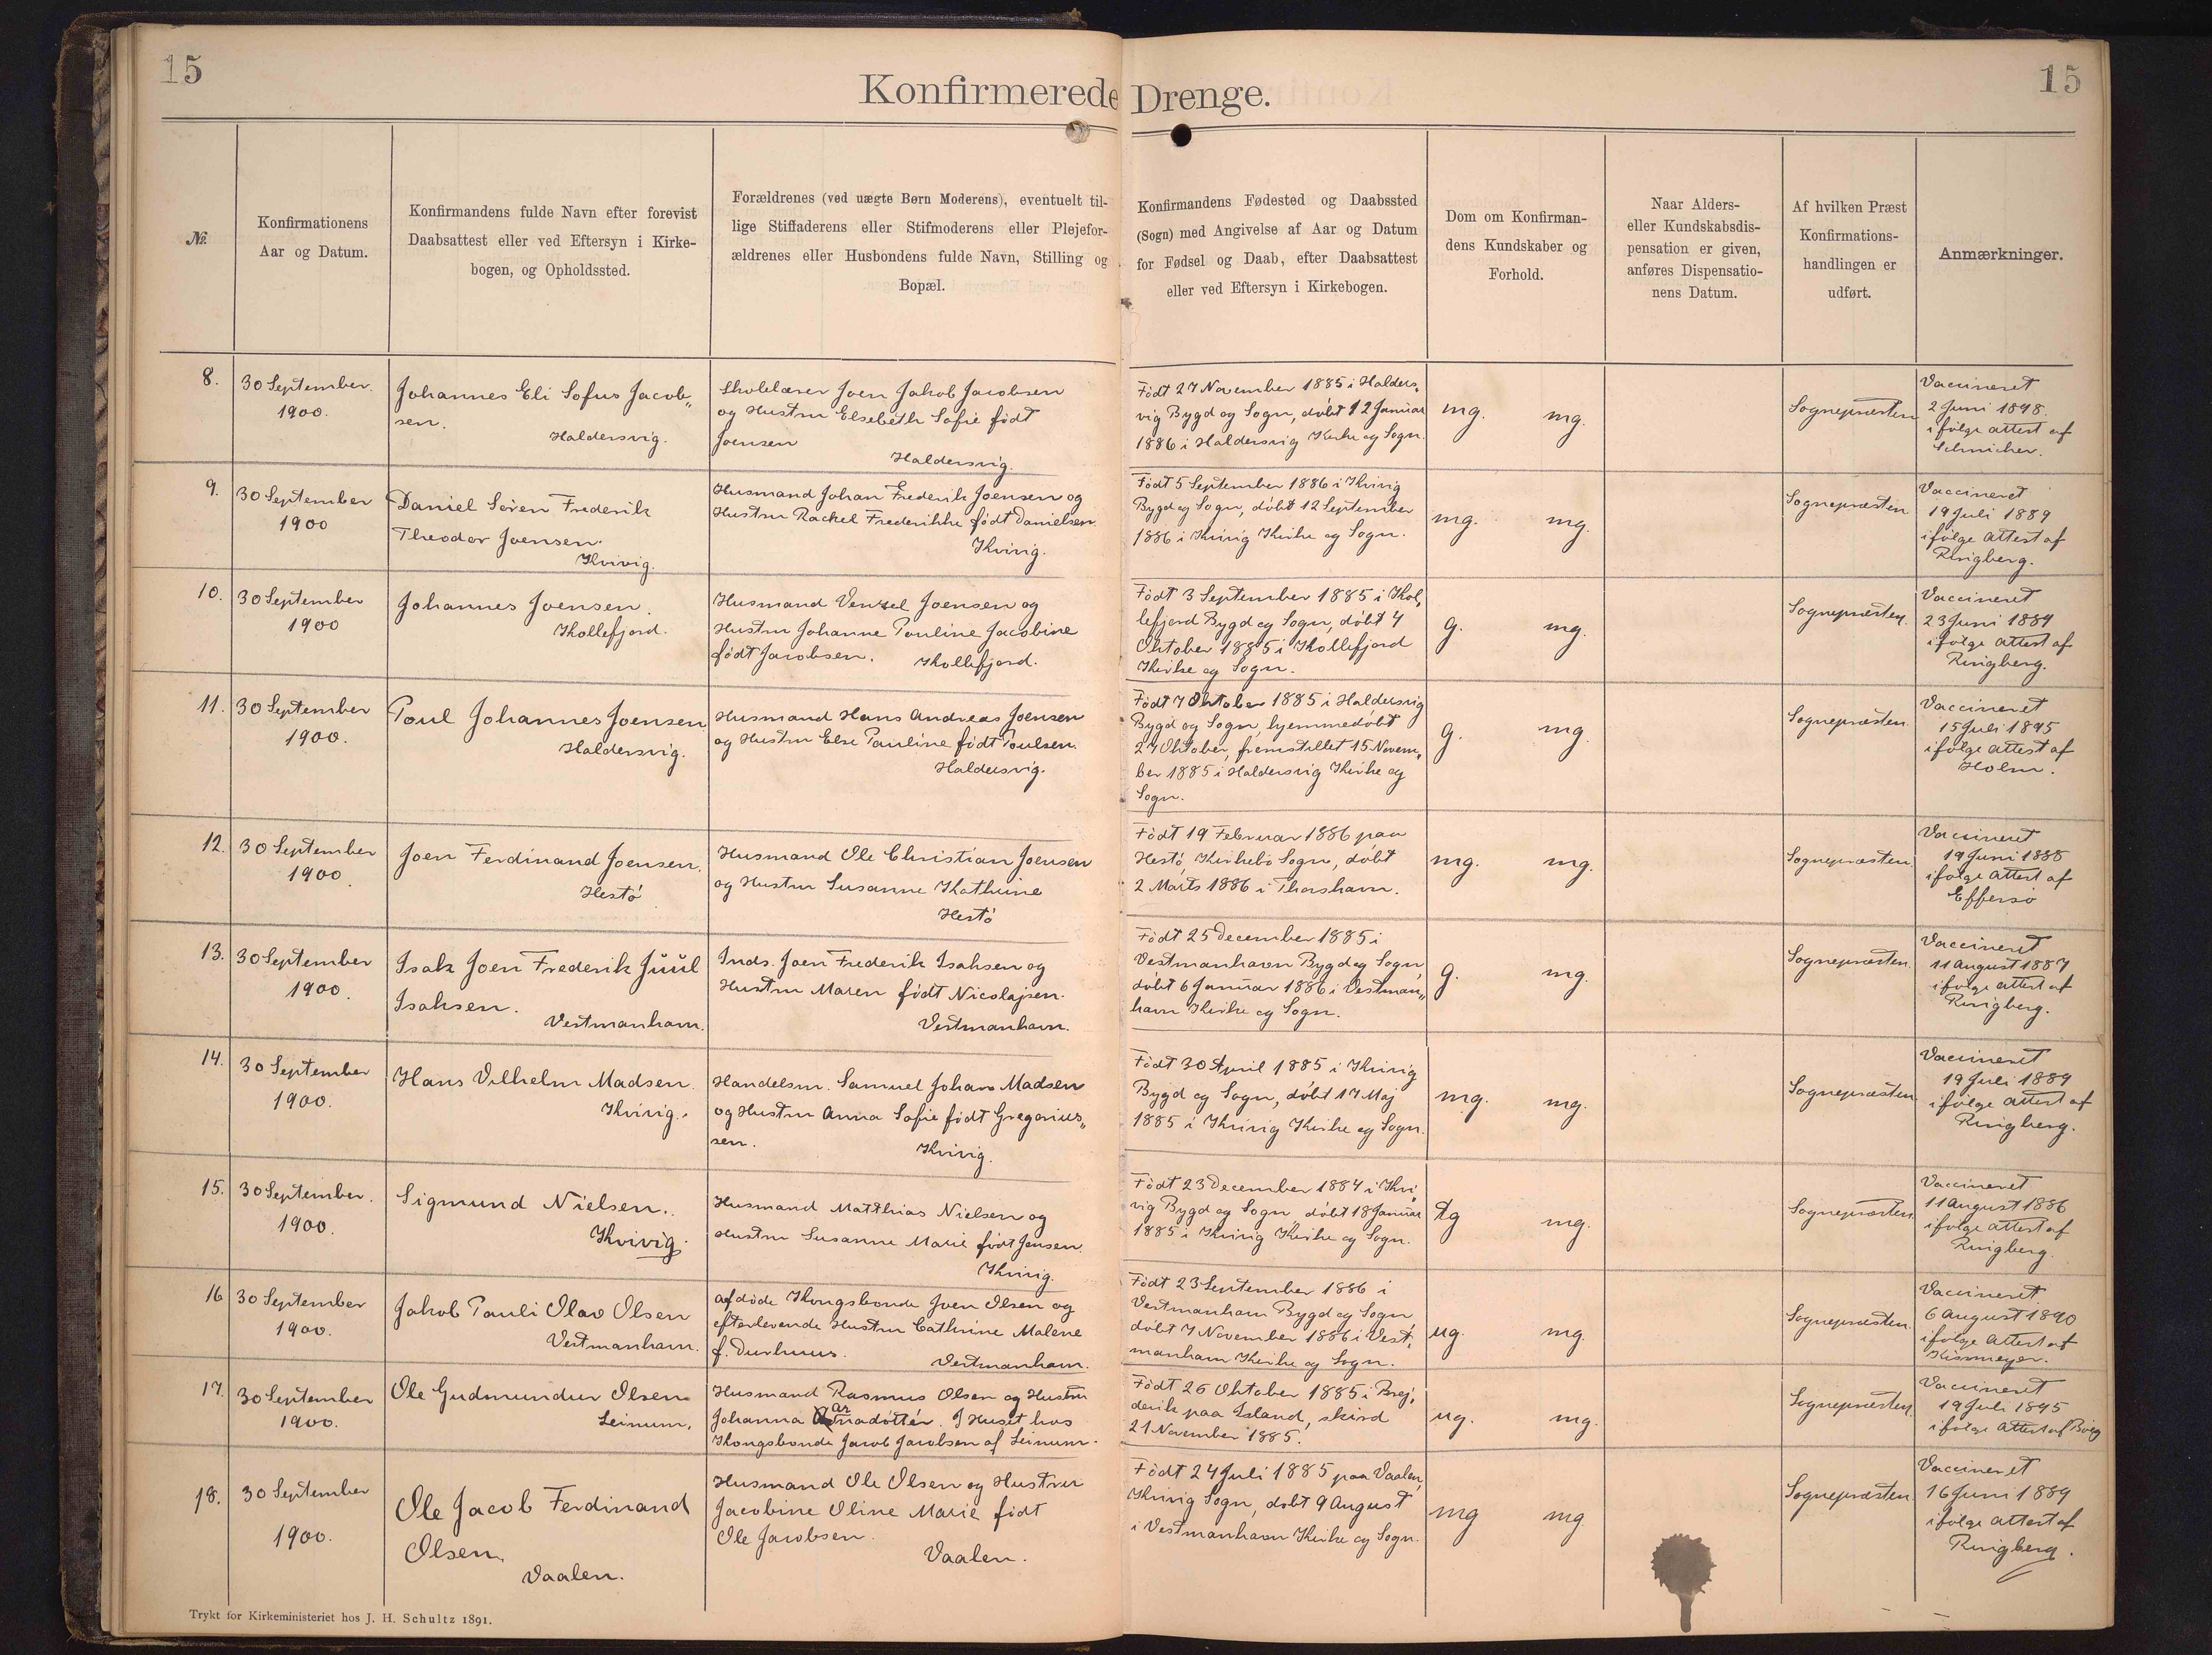 15
Konfirmerede Drenge.
15
№.
Konfirmationens
Aar og Datum.
Konfirmandens fulde Navn efter forevist
Daabsattest eller ved Eftersyn i Kirke-
bogen, og Opholdssted.
Forældrenes (ved uægte Børn Moderens), eventuelt til-
lige Stiffaderens eller Stifmoderens eller Plejefor-
ældrenes eller Husbondens fulde Navn, Stilling og
Bopæl.
Konfirmandens Fødested og Daabssted
(Sogn) med Angivelse af Aar og Datum
for Fødsel og Daab, efter Daabsattest
eller ved Eftersyn i Kirkebogen.
Dom om Konfirman-
dens Kundskaber og
Forhold.
Naar Alders-
eller Kundskabsdis-
pensation er given,
anføres Dispensatio-
nens Datum.
Af hvilken Præst
Konfirmations-
handlingen er
udført.
Anmærkninger.
8.
30 September.
1900.
Johannes Eli Sofus Jacob„
sen.
Haldersvig.
Skolelærer Joen Jakob Jacobsen
og Hustru Elsebeth Sofie født
Joensen
Haldersvig.
Født 27 November 1885 i Halders„
vig Bygd og Sogn, døbt 12 Januar
1886 i Haldersvig Kirke og Sogn.
mg. mg.
Sognepræsten
Vaccineret
2 Juni 1898.
i følge attest af
9.
30 September
1900
Daniel Søren Frederik
Theodor Joensen.
Kvivig.
Husmand Johan Frederik Joensen og
Hustru Rachel Frederikke født Danielsen
Kvivig.
Født 5 September 1886 i Kvivig
Bygd og Sogn, døbt 12 September
1886 i Kvivig Kirke og Sogn.
mg. mg.
Sognepræsten
Vaccineret
19 Juli 1889
ifølge Attest af
Ringberg.
10.
30 September
1900
Johannes Joensen.
Kollefjord.
Husmand Venzel Joensen og
Hustru Johanne Pouline Jacobine
født Jacobsen. Kollefjord.
Født 3 September 1885 i Kol„
lefjord Bygd og Sogn, døbt 4
Oktober 1885 i Kollefjord
Kirke og Sogn.
g. mg.
Sognepræsten.
Vaccineret
23 Juni 1889
ifølge attest af
Ringberg.
11.
30 September
1900.
Poul Johannes Joensen
Haldersvig.
Husmand Hans Andreas Joensen
og Hustru Else Pauline født Poulsen.
Haldersvig.
Født 7 Oktober 1885 i Haldersvig
Bygd og Sogn, hjemmedøbt
27 Oktober, fremstillet 15 Novem„
ber 1885 i Haldersvig Kirke og
Sogn.
g. mg.
Sognepræsten.
Vaccineret
15 Juli 1895
ifølge attest af
Holm.
12.
30 September
1900.
Joen Ferdinand Joensen.
Hestø
Husmand Ole Christian Joensen
og Hustru Susanne Kathrine
Hestø
Født 19 Februar 1886 paa
Hestø, Kirkebø Sogn, døbt
2 Marts 1886 i Thorshavn.
mg. mg.
Sognepræsten
Vaccineret
19 Juni 1888
ifølge Attest af
Effersø
13.
30 September
1900.
Isak Joen Frederik Juul
Isaksen.
Vestmanhavn.
Inds. Joen Frederik Isaksen og
Hustru Maren født Nicolajsen.
Vestmanhavn.
Født 25 December 1885 i
Vestmanhavn Bygd og Sogn,
døbt 6 Januar 1886 i Vestman„
havn Kirke og Sogn.
g. mg.
Sognepræsten.
Vaccineret
11 August 1887
ifølge attest af
Ringberg.
14.
30 September
1900.
Hans Vilhelm Madsen.
Kvivig.
Handelsm. Samuel Johan Madsen
og Hustru Anna Sofie født Gregorius„
sen. Kvivig.
Født 30 April 1885 i Kvivig
Bygd og Sogn, døbt 17 Maj
1885 i Kvivig Kirke og Sogn.
mg. mg.
Sognepræsten
Vaccineret
19 Juli 1889
ifølge attest af
Ringberg.
15.
30 September.
1900.
Sigmund Nielsen.
Kvivig.
Husmand Matthias Nielsen og
Hustru Susanne Marie født Jensen.
Kvivig.
Født 23 December 1884 i Kvi„
vig Bygd og Sogn døbt 18 Januar
1885 i Kvivig Kirke og Sogn.
tg mg.
Sognepræsten
Vaccineret
11 August 1886
ifølge attest af
Ringberg.
16
30 September
1900.
Jakob Pauli Olav Olsen
Vestmanhavn.
Afdøde Kongsbonde Joen Olsen og
efterlevende Hustru Cathrine Malene
f. Durhuus. Vestmanhavn.
Født 23 September 1886 i
Vestmanhavn Bygd og Sogn,
døbt 7 November 1886 i Vest„
manhavn Kirke og Sogn.
ug. mg.
Sognepræsten.
Vaccineret
6 August 1890
ifølge Attest af
Kissmeyer.
17.
30 September
1900.
Ole Gudmundur Olsen
Leinum.
Husmand Rasmus Olsen og Hustru
Johanna . I Huset hos
Kongsbonde Jacob Jacobsen af Leinum.
Født 26 Oktober 1885 i Brej„
devik paa Island, skird
21 November 1885.
ug. mg.
Sognepræsten.
Vaccineret
19 Juli 1895
ifølge Attest af
18.
30 September
1900.
Ole Jacob Ferdinand
Olsen.
Vaalen.
Husmand Ole Olsen og Hustru
Jacobine Oline Marie født
Ole Jacobsen.
Vaalen.
Født 24 Juli 1885 paa Vaalen,
Kvivig Sogn, døbt 9 August
i Vestmanhavn Kirke og Sogn.
mg mg
Sognepræsten.
Vaccineret
16 Juni 1889
ifølge attest af
Ringberg.
Trykt for Kirkeministeriet hos J. H. Schultz 1891.